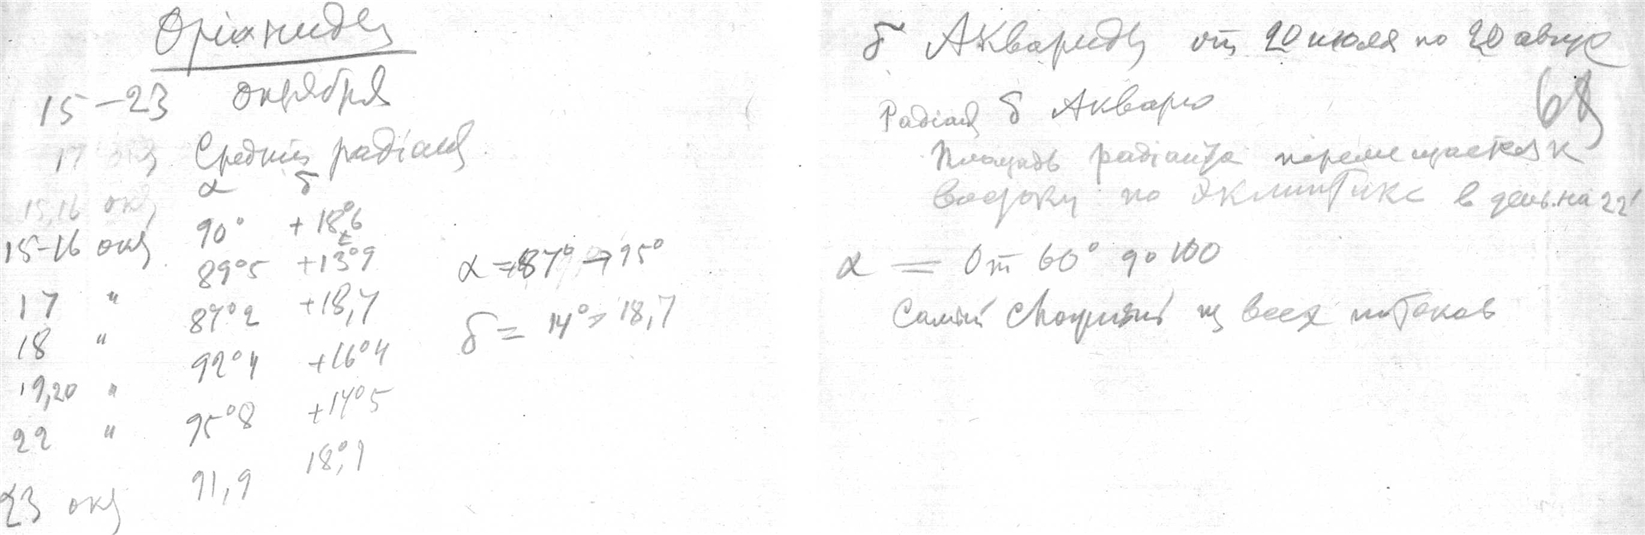 Оріониды
15–23 октября
17 окт Средній радіант
α δ
15,16 окт
15–16 окт 90° +18°6
89°5 +13°9
17 " 87°2 +18,7
18 " 92°4 +16°4
19,20 "
22 " 95°8 +14°5
23 окт 91,9 18°,1
α = 87° → 95°
δ = 14° > 18,7
δ Аквариды от 20 июля по 20 авгус
68
Радіант δ Акваріо
Площадь радіанта перемещается к
востоку по эклиптике в день на 22'
α = От 60° до 100
Самый мощный из всех потоков